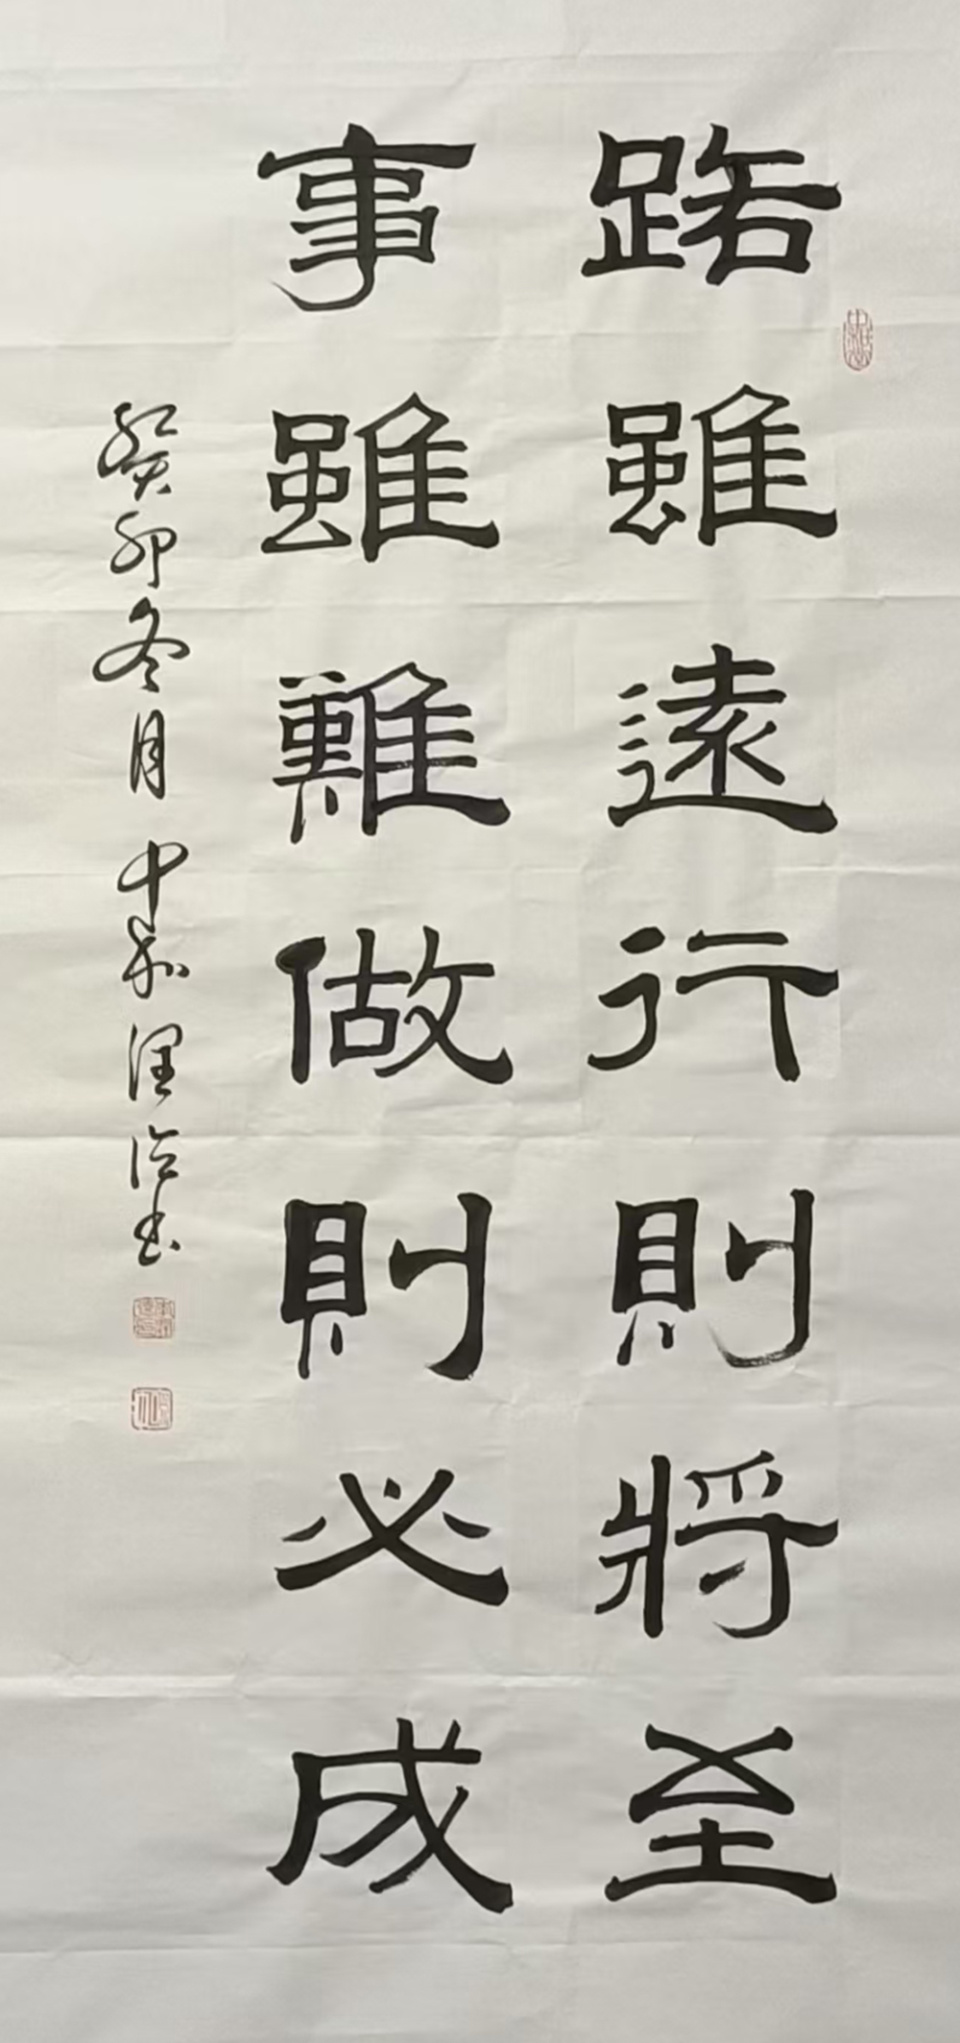 路雖遠行則將至
事雖難做則必成
癸卯冬月中州